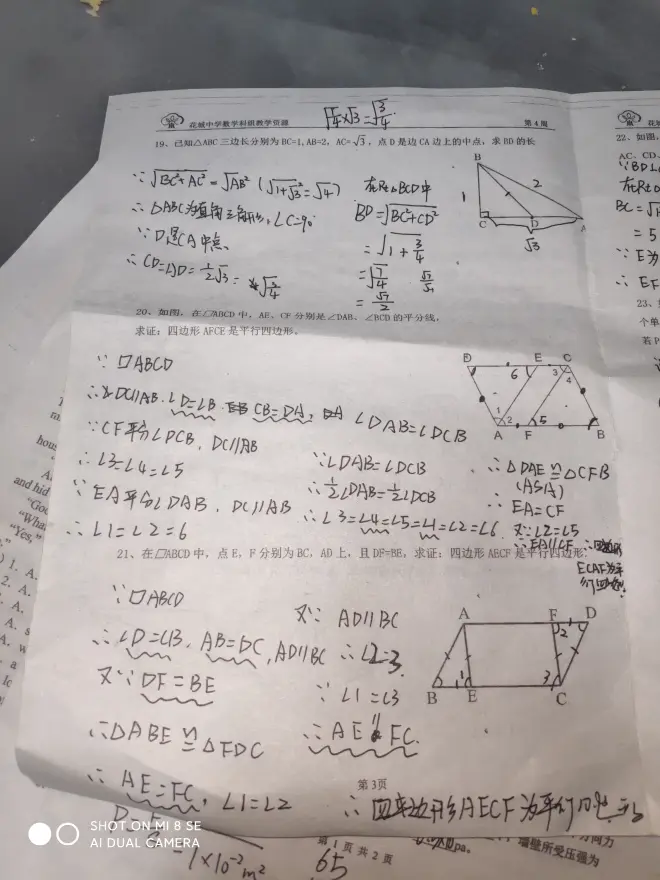 花城中学数学科组教学资源
第4周
√3/4
19、已知△ABC三边长分别为BC=1,AB=2,AC=√3,点D是边CA边上的中点,求BD的长
∵√BC²+AC²=√AB² (√1+√3²=√4)
∴△ABC为直角三角形,∠C=90°
∵D是CA中点
∴CD=AD=1/2√3=√3/4
在Rt△BCD中
BD=√BC²+CD²
=√1+3/4
=√7/4
=√7/2
B
1
2
C
D
A
√3
20、如图,在▱ABCD中,AE、CF分别是∠DAB、∠BCD的平分线,
求证:四边形AFCE是平行四边形。
∵▱ABCD
∴DC∥AB.∠D=∠B.CB=DA,∠DAB=∠DCB
∵CF平分∠DCB,DC∥AB
∴∠3=∠4=∠5
∵EA平分∠DAB,DC∥AB
∴∠1=∠2=6
∵∠DAB=∠DCB
∴1/2∠DAB=1/2∠DCB
∴∠3=∠4=∠5=∠1=∠2=∠6
∴△DAE≌△CFB
(ASA)
∴EA=CF
又∵∠2=∠5
∴EA∥CF
∴四边形
ECAF为平
行四边形
D
E
C
6
3
4
1
2
5
A
F
B
21、在▱ABCD中,点E,F分别为BC,AD上,且DF=BE,求证:四边形ABCF是平行四边形.
∵▱ABCD
∴∠D=∠B.AB=DC,AD∥BC
又∵DF=BE
∴△ABE≌△FDC
∴AE=FC,∠1=∠2
又∵AD∥BC
∴∠2=3
∵∠1=∠3
∴AE∥FC.
∴四边形AECF为平行四边形
A
F
D
2
1
3
B
E
C
第3页
22、如图,
AC、CD、
在Rt△
=5
∵E为
∴EF
23、
个单
若P
and hid
"Yes,"
1×10⁻²m²
第1页共2页
65
墙壁所受压强为
SHOT ON MI 8 SE
AI DUAL CAMERA